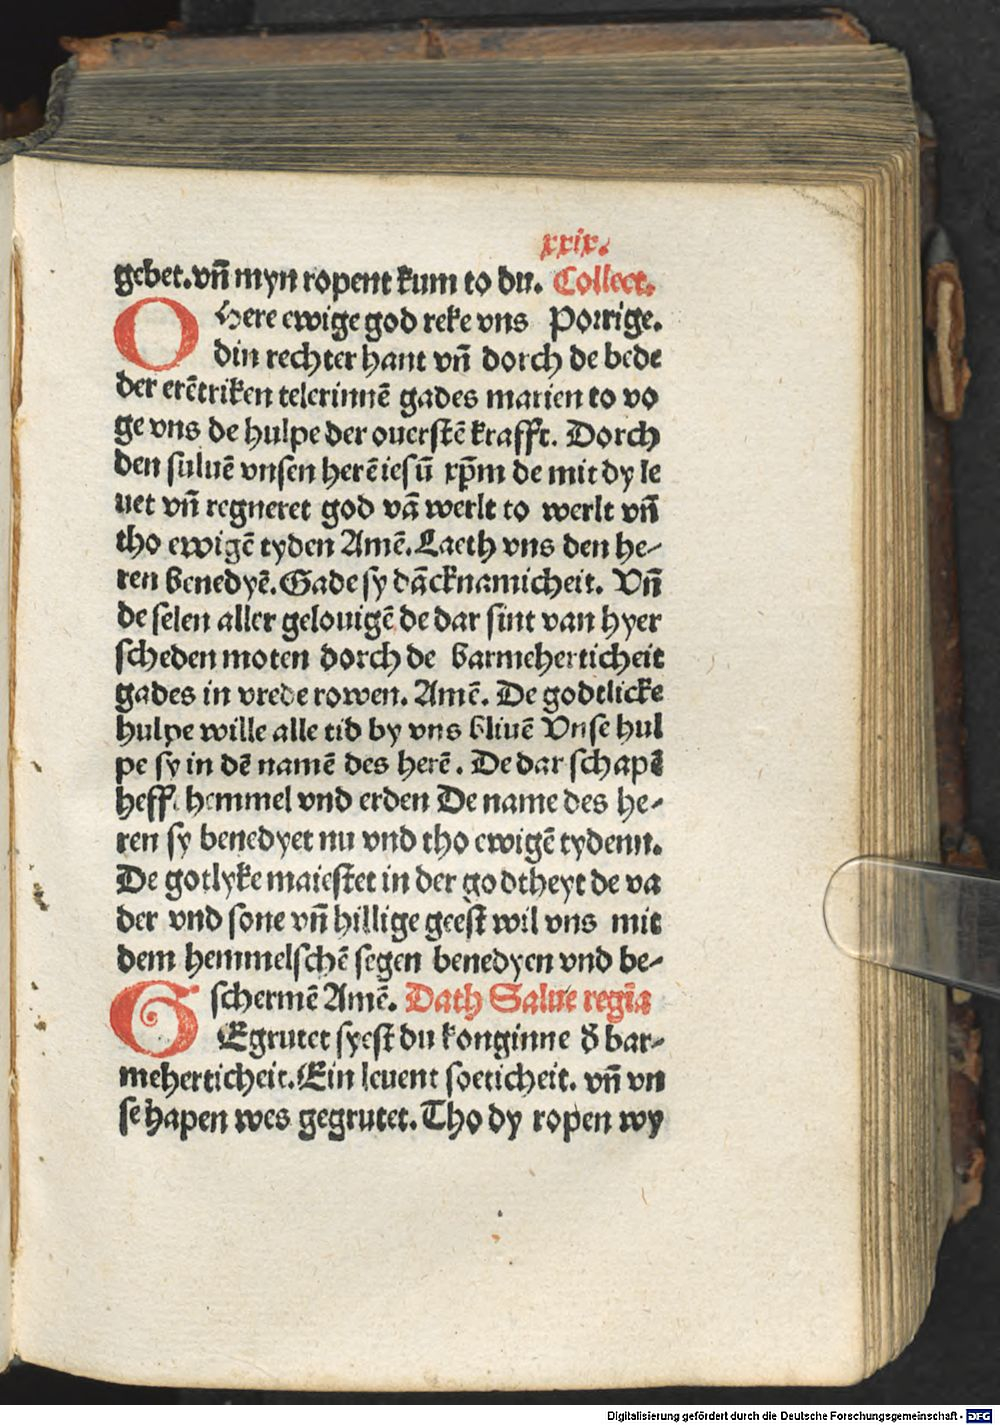 xxix.
gebet. vn̄ myn ropent kum to du. Collect.
O Here ewige god reke vns Porrige.
din rechter hant vn̄ dorch de bede
der erētriken telerinnē gades marien to vo
ge vns de hulpe der ouerstē krafft. Dorch
den suluē vnsen herē iesū xp̄m de mit dy le
uet vn̄ regneret god vā werlt to werlt vn̄
tho ewigē tyden Amē. Laeth vns den he-
ren benedyē. Gade sy dācknamicheit. Vn̄
de selen aller gelouigē de dar sint van hyer
scheden moten dorch de barmeherticheit
gades in vrede rowen. Amē. De godtlicke
hulpe wille alle tid by vns bliuē Vnse hul
pe sy in dē namē des herē. De dar schapē
heff hemmel vnd erden De name des he-
ren sy benedyet nu vnd tho ewigē tydenn.
De gotlyke maiestet in der godtheyt de va
der vnd sone vn̄ hillige geest wil vns mit
dem hemmelschē segen benedyen vnd be-
schermē Amē. Dath Salue regīa
GEgrutet syest du konginne d̄ bar-
meherticheit. Ein leuent soeticheit. vn̄ vn
se hapen wes gegrutet. Tho dy ropen wy
Digitalisierung gefördert durch die Deutsche Forschungsgemeinschaft - DFG